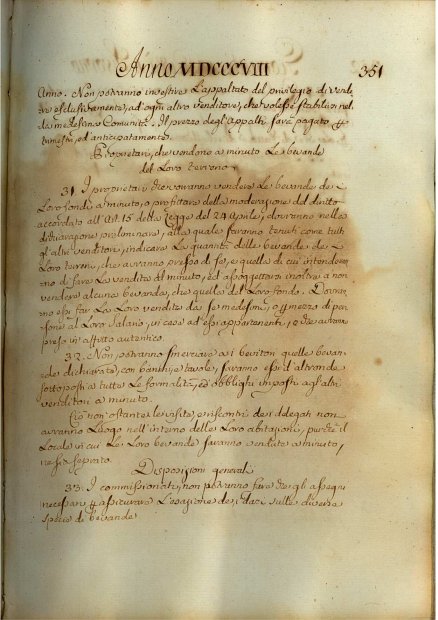 Anno MDCCCVIII 351
Anno. Non potranno investire l'appaltato del privilegio di vende-
re esclusivamente, ad ogni altro venditore, che volesse stabilirsi nel-
la medesima Comunità. Il prezzo degl'Appalti sarà pagato per
trimestri, ed anticipatamente.
Proprietari, che vendono a minuto le bevande
del loro terreno
31. I proprietari che vorranno vendere le bevande de
loro fondi a minuto, o profittare della moderazione del diritto
accordato all'Art. 15 della Legge del 24 Aprile, dovranno nella
dichiarazione preliminare, alla quale saranno tenuti come tutti
gl'altri venditori, indicare la quantità delle bevande de
loro terreni, che avranno presso di se, e quella di cui intenderan-
no di fare la vendita al minuto, ed assoggettarsi inoltre a non
vendere alcuna bevanda, che quella del loro fondo. Dovran-
no essi far la loro vendita da se medesimi, o per mezzo di per-
sone al loro Salario, in case ad essi appartenenti, o che avranno
preso in affitto autentico.
32. Non potranno smerciare ai bevitori quelle bevan-
de dichiarate, con banchi, e tavole, saranno essi d'altronde
sottoposti a tutte le formalità, ed obblighi imposti agl'altri
venditori a minuto.
Ciò non ostante le visite, e riscontri dei delegati non
avranno luogo nell'interno delle loro abitazioni, purchè il
Locale in cui le loro bevande saranno vendute a minuto,
ne sia separato.
Disposizioni generali
33. I commissionati, non potranno fare che gli assegni
necessari per assicurare l'esazione dei dazi sulle diverse
specie di bevande